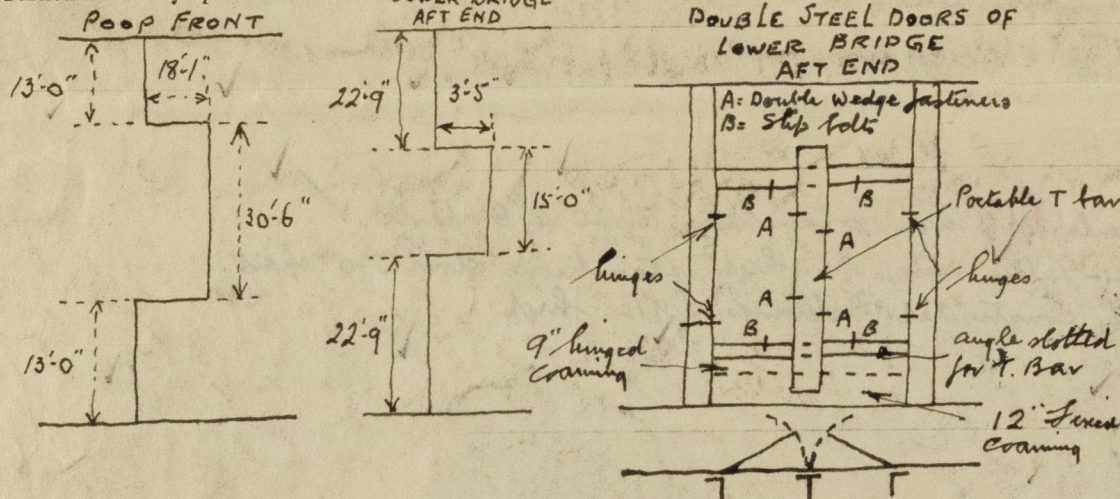 POOP FRONT
13'-0"
18'-1"
30'-6"
13'-0"
LOWER BRIDGE
AFT END
22'-9"
3'-5"
15'-0"
22'-9"
DOUBLE STEEL DOORS OF
LOWER BRIDGE
AFT END
A= Double Wedge fasteners
B= Slip bolts
B
B
A
A
Portable T bar
hinges
hinges
A
A
B
B
9" hinged
coaming
angle slotted
for T. Bar
12" Fixed
coaming